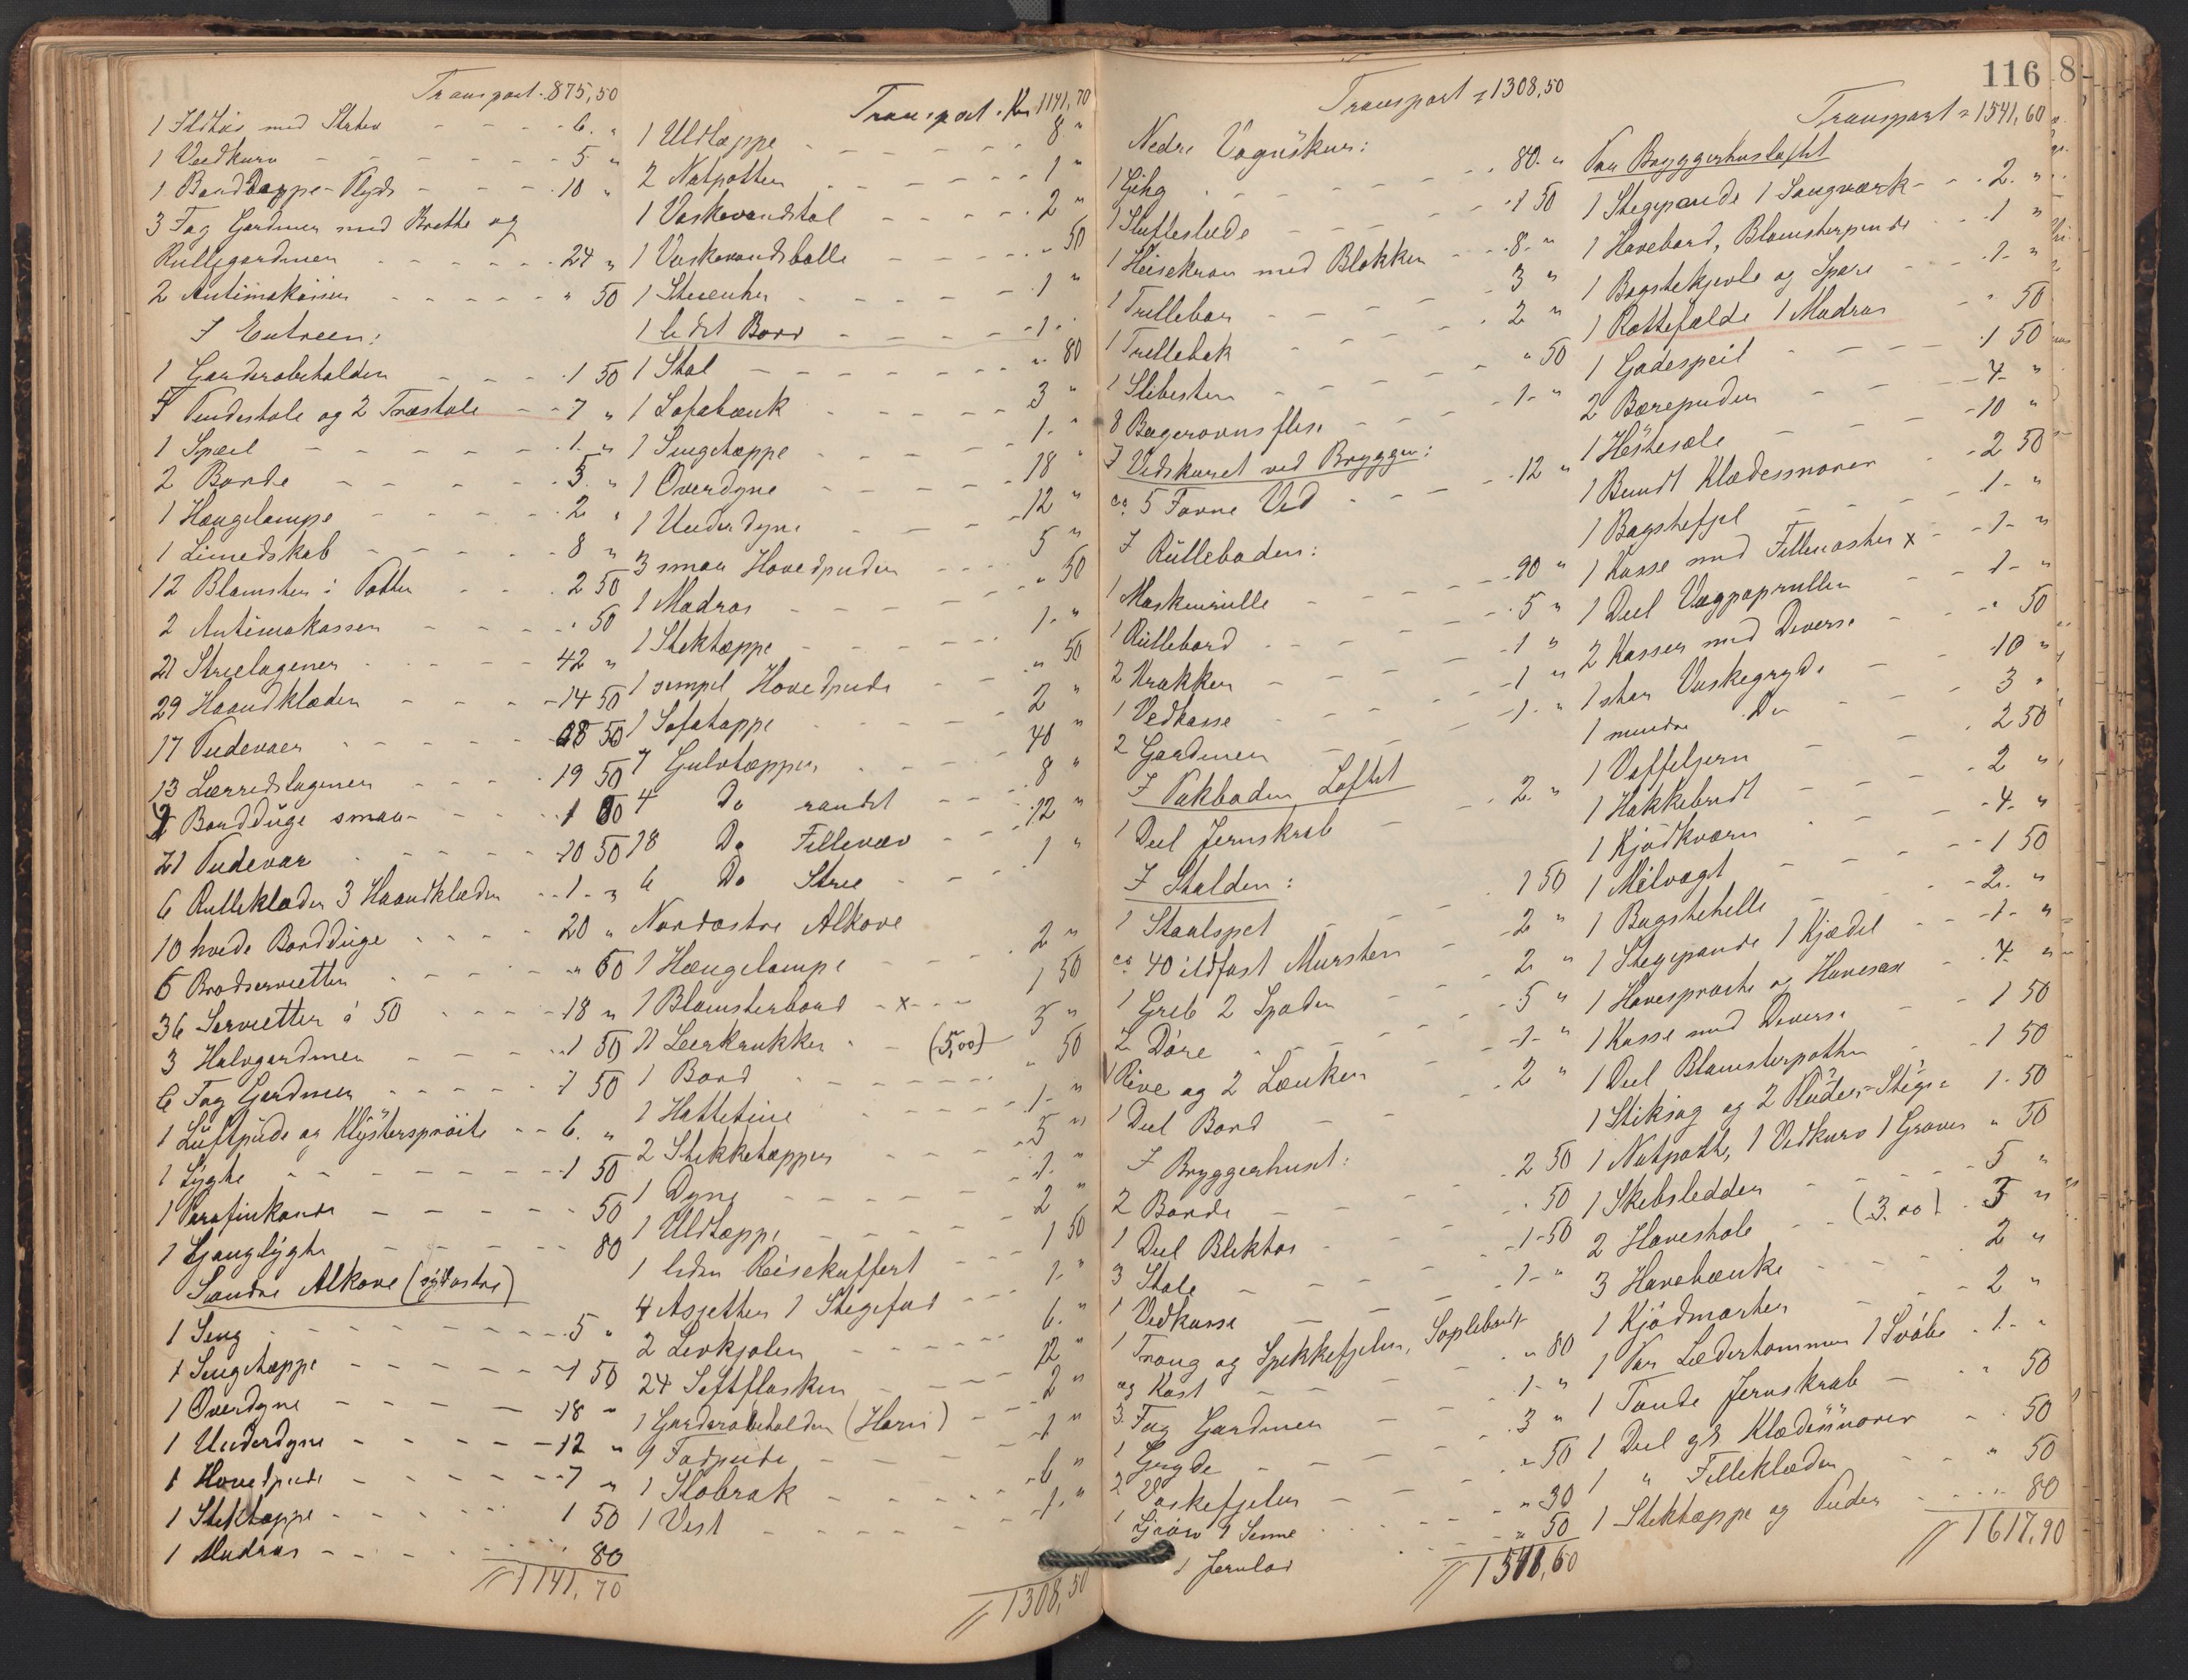 Transport. 875,50
1 Ildtøi med Stativ - - - 6. "
1 Vedkurv - - - 5 "
1 Bordtæppe-Plyds - - - 10 "
3 Fag Gardiner med Brætte og
Rullegardiner - - - 24 "
2 Antimakasser - - - " 50
I Entreen:
1 Garderobeholder - - - 1 50
4 Pindestole og 2 Træstole - - 7 "
1 Speil - - - 1. "
2 Borde - - - 3. "
1 Hængelampe - - - 2 "
1 Linnedskab - - - 8 "
12 Blomster i Potter - - - 2 50
2 Antimakasser - - - " 50
21 Strielagener - - - 42 "
29 Haandklæder - - - 14 50
17 Pudevaer - - - 8 50
13 Lærredslagener - - - 19 50
2 Bordduge smaa - - - 1 80
21 Pudevar - - - 10 50
6 Rulleklæder 3 Haandklæder - - 1. "
10 hvide Bordduge - - - 20 "
6 Brødservietter - - - " 60
36 Servietter á 50 - - - 18 "
3 Halvgardiner - - - 1 50
6 Fag Gardiner - - - 7 50
1 Luftpude og Klystersprøite - - 6. "
1 Lygte - - - 1 50
1 Parafinkande - - - 50
1 Ganglygte - - - 80
Søndre Alkove (sydøstre)
1 Seng - - - 5 "
1 Sengetæppe - - - 1 50
1 Overdyne - - - 18 "
1 Underdyne - - - 12 "
1 Hovedpude - - - 7 "
1 Stektæppe - - - 1 50
1 Madras - - - 80
1141,70
Transport. Kr 1141,70
1 Uldtæppe - - - 8 "
2 Natpotter - - - 1 "
1 Vaskevandstol - - - 2 "
1 Vaskevandsbolle - - - " 50
1 Stesenter - - - 1 "
1 lidet Bord - - - 1. "
1 Stol - - - " 80
1 Sofabænk - - - 3 "
1 Sengetæppe - - - 1. "
1 Overdyne - - - 18 "
1 Underdyne - - - 12 "
3 smaa Hovedpuder - - - 5 "
1 Madras - - - " 50
1 Stektæppe - - - 1. "
1 simpel Hovedpude - - - " 50
1 Sofatæppe - - - 2 "
7 Gulvtæpper - - - 40 "
4 Do randet - - - 8 "
18 Do Fillevæv - - - 12 "
6 Do Strie - - - 1 "
Nordøstre Alkove
1 Hængelampe - - - 2 "
1 Blomsterbord - x - - 1 50
11 Leerkrukker - - (5,00) 5 "
1 Bord - - - " 50
1 Hattetine - - - 1. "
2 Stikketæpper - - - 5 "
1 Dyne - - - 1. "
1 Uldtæppe - - - 2 "
1 liden Reisekuffert - - - 1 50
4 Asjetter 1 Stegefad - - - 1. "
2 Livkjoler - - - 6. "
24 Saftflasker - - - 12 "
1 Garderobeholder (Horn) - - 2 "
1 Fodpude - - - 1 "
1 Slobrok - - - 6 "
1 Vest - - - 1. "
1308,50
Transport = 1308,50
Nedre Vognskur:
1 Gihg - - - 80. "
1 Slufteslæde - - - 1 50
1 Heisekran med Blokker - - - 8. "
1 Trillebør - - - 3 "
1 Trillebak - - - 2 "
1 Slibesten - - - " 50
8 Bagerovnsflise - - - 1. "
I Vedskuret ved Bryggen:
ca 5 Favne Ved - - - 12 "
I Rulleboden:
1 Maskinrulle - - - 90 "
1 Rullebord - - - 5 "
2 Krakker - - - 1 "
1 Vedkasse - - - 1 "
2 Gardiner - - - 1. "
I Pakboden Loftet
1 Deel Jernskrab - - - 2. "
I Stalden:
1 Staalspet - - - 1 50
ca 40 ildfast Mursten - - - 2 "
1 Greb 2 Spader - - - 2 "
2 Døre - - - 5 "
1 Rive og 2 Lænker - - - 1. "
1 Deel Bord - - - 2 "
I Bryggerhuset:
2 Borde - - - 2 50
1 Deel Bliktøi - - - " 50
3 Stole - - - 1-50
1 Vedkasse - - - 1. "
1 Traug og Spekkefjeler, Soplebrett
og Kost - - - " 80
3 Fag Gardiner - - - 1. "
1 Gryde - - - 3 "
2 Vaskefjeler - - - " 50
1 Gjøv 1 Senne - - - " 30
1 Jernlod - - - " 50
1541,60
116
Transport = 1541,60
Paa Bryggerhusloftet
1 Stegepande 1 Saugværk - - - 2. "
1 Havebord, Blomsterpinde - - - 1 "
1 Bagstekjevle og Spare - - - 1. "
1 Rottefælde 1 Madras - - - " 50
1 Gadespeil - - - 1 50
2 Bærepuder - - - 4. "
1 Hestesæle - - - 10 "
1 Bundt Klædessnorer - - - 2 50
1 Bagstefjel - - - 1. "
1 Kasse med Filleraster x - - 1. "
1 Deel Vægpapruller - - - 1. "
2 Kasser med Diverse - - - " 50
1 stor Vaskegryde - - - 10 "
1 mindre Do - - - 3 "
1 Vaffeljern - - - 2 50
1 Hakkebret - - - 2 "
1 Kjødkværn - - - 4. "
1 Melvægt - - - 1 50
1 Bagstehelle - - - 2. "
1 Stegepande 1 Kjædel - - - 1. "
1 Havesprøite og Havesax - - - 4. "
1 Kasse med Diverse - - - 1 50
1 Deel Blomsterpotter - - - 1 50
1 Stiksag og 2 Ruder-Stiger 1.50
1 Natpotte, 1 Vedkurv 1 Graves " 50
1 Skibsledder - - - 5 "
2 Havestole - - (3.00) 3 "
3 Havebænke - - - 2 "
1 Kjødmorter - - - 2 "
1 Par Lædertømmer 1 Svøbe - 1. "
1 Tønde Jernskrab - - - " 50
1 Deel gl Klædesnorer - - 50
1 " Filleklæder - - - " 50
1 Stektæppe og Puder - - - 80
1617,90
8